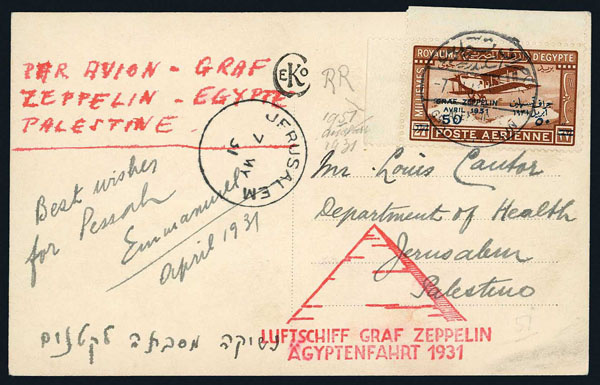 PAR AVION - GRAF
ZEPPELIN - EGYPTE
PALESTINE.
EKCo
RR
1951
1931
ROYAUME D'EGYPTE
MILLIEMES
GRAF ZEPPELIN
AVRIL 1931
50
POSTE AERIENNE
JERUSALEM
7 MY
31
Best wishes
for Pessach
Emmanuel
April 1931
Mr. Louis Cantor
Department of Health
Jerusalem
Palestine
LUFTSCHIFF GRAF ZEPPELIN
ÄGYPTENFAHRT 1931
נשיקה מסבתה לקטנים
51